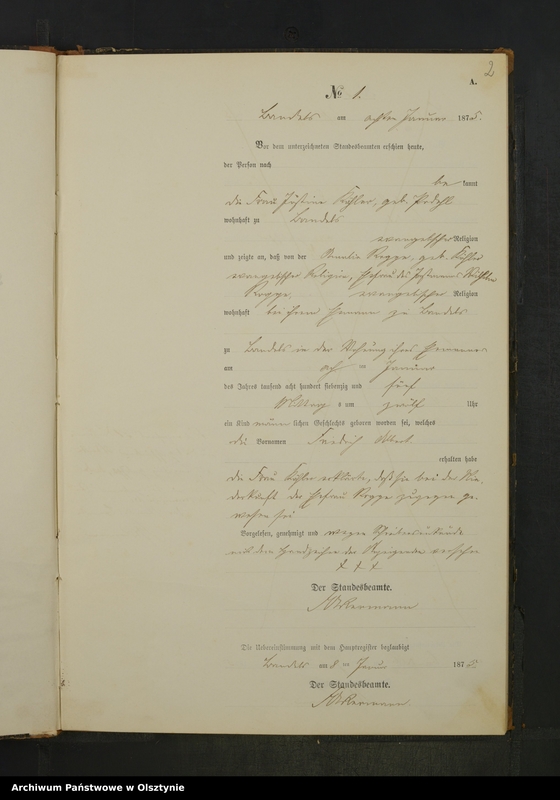 2
A.
No 1.
Bandels am achten Januar 1875.
Vor dem unterzeichneten Standesbeamten erschien heute,
der Person nach
be kannt
die Frau Justine Köhler, geb. Podehl
wohnhaft zu Bandels
evangelischer Religion
und zeigte an, daß von der Amalie Rogge, geb. Köhler
evangelischer Religion, Ehefrau des Wilhelm
Rogge, evangelischer Religion
wohnhaft bei ihrem Ehemann zu Bandels
zu Bandels in der Wohnung ihres Ehemannes
am ten Januar
des Jahres tausend acht hundert siebenzig und fünf
Mittags um zwölf Uhr
ein Kind männlichen Geschlechts geboren worden sei, welches
die Vornamen Friedrich Albert
erhalten habe
die Frau Köhler erklärte, daß sie bei der Nie-
derkunft der Ehefrau Rogge zugegen ge-
wesen sei
Vorgelesen, genehmigt und wegen Schreibensunkunde
mit dem Handzeichen der Anzeigenden versehen
+ + +
Der Standesbeamte.
Ackermann
Die Uebereinstimmung mit dem Hauptregister beglaubigt
Bandels am 8 ten Januar 1875.
Der Standesbeamte.
Ackermann
Archiwum Państwowe w Olsztynie